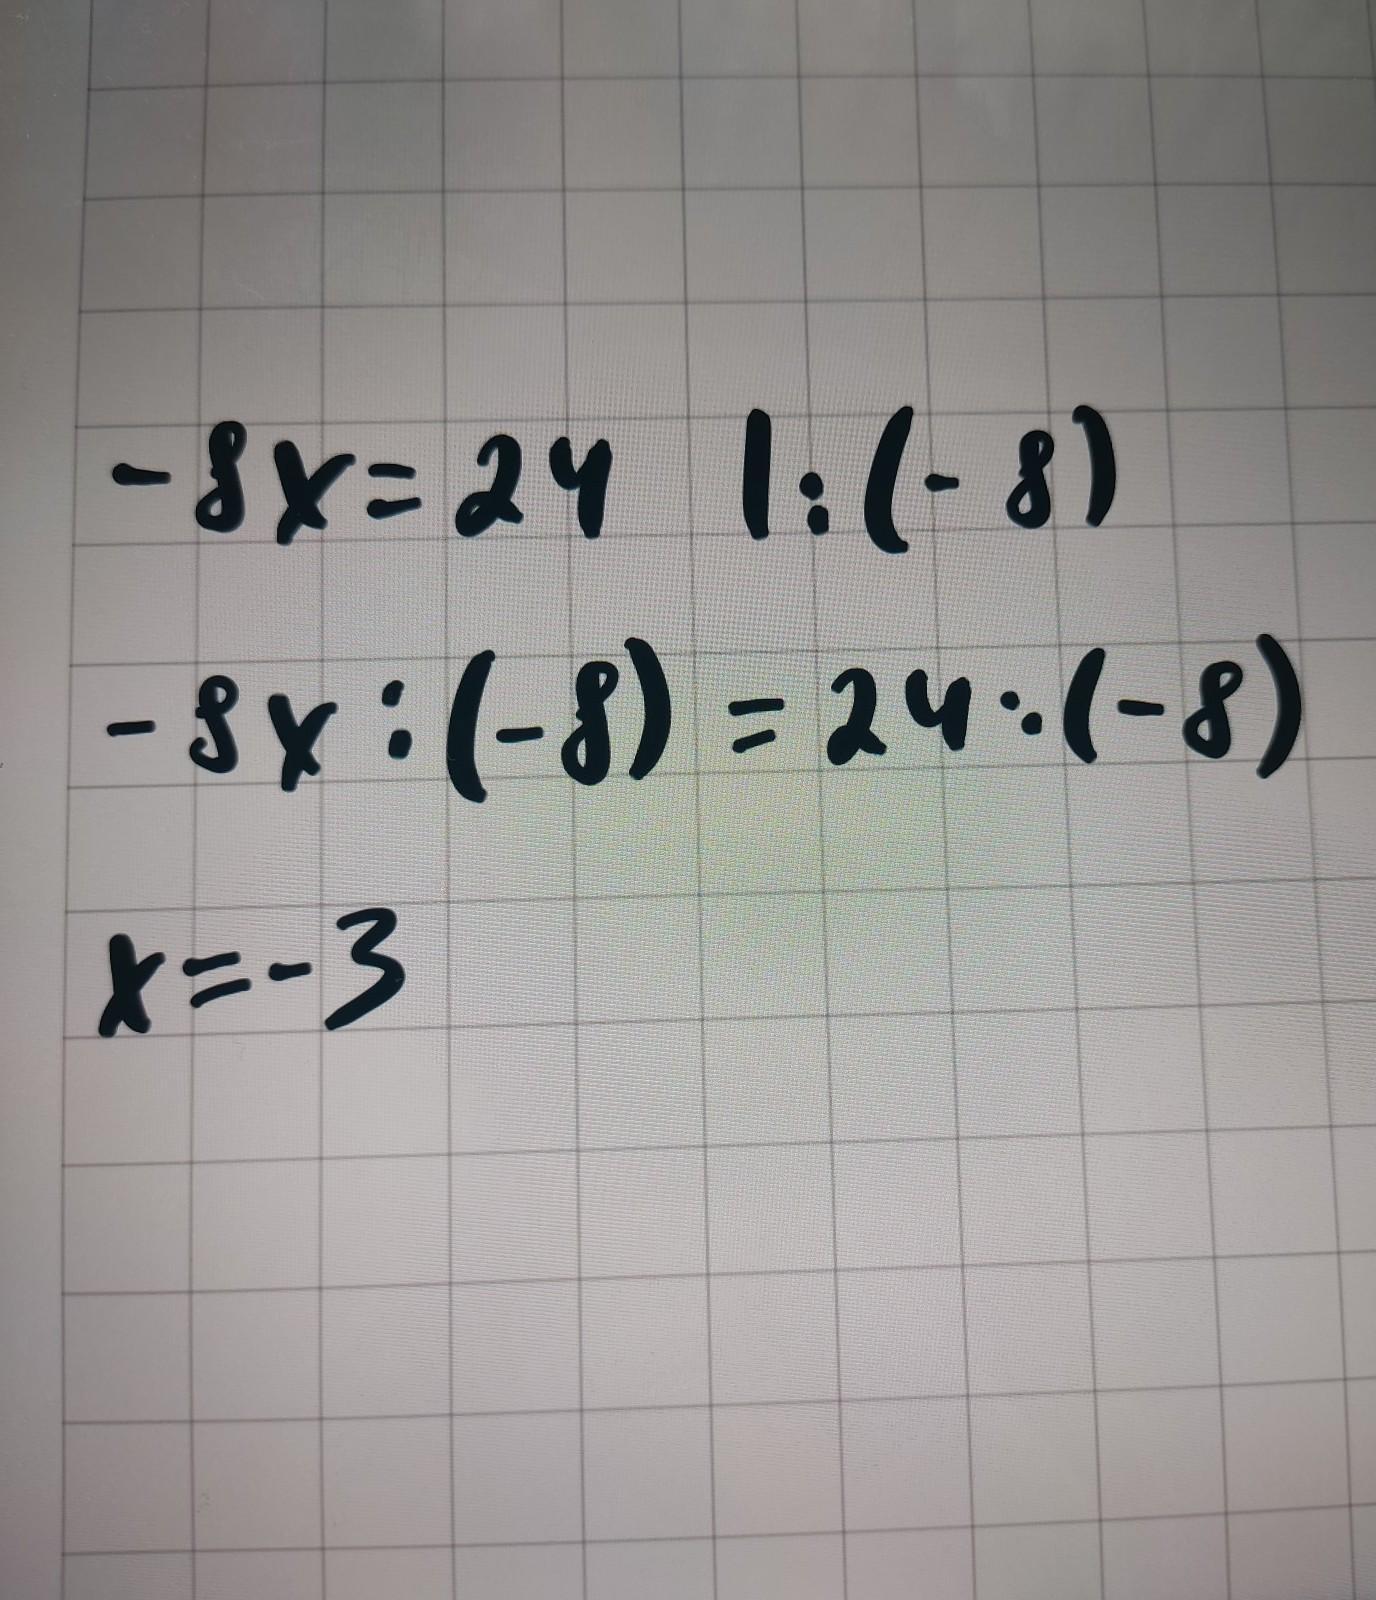 -8x=24 |:(-8)
-8x:(-8)=24:(-8)
x=-3